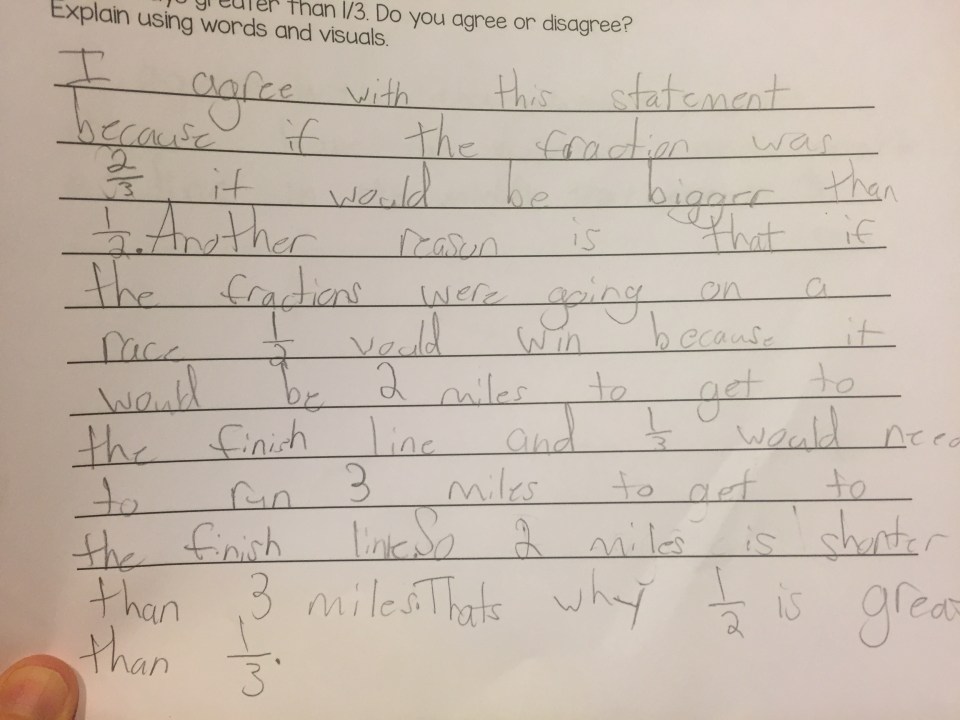 greater than 1/3. Do you agree or disagree?
Explain using words and visuals.
I agree with this statement
because if the fraction was
2/3 it would be bigger than
1/2. Another reason is that if
the fractions were going on a
race 1/2 would win because it
would be 2 miles to get to
the finish line and 1/3 would need
to run 3 miles to get to
the finish line. So 2 miles is shorter
than 3 miles. Thats why 1/2 is grea
than 1/3.